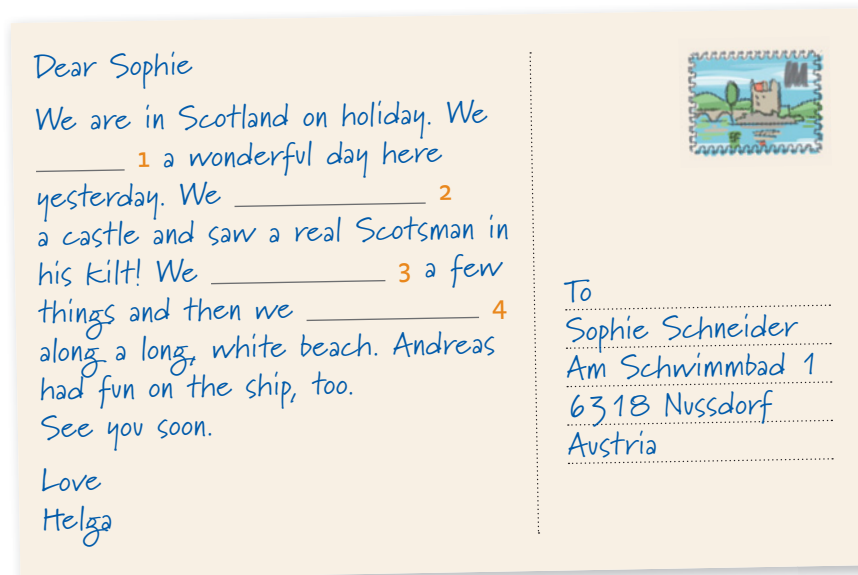 Dear Sophie
We are in Scotland on holiday. We
________ 1 a wonderful day here
yesterday. We ________________ 2
a castle and saw a real Scotsman in
his kilt! We ________________ 3 a few
things and then we ________________ 4
along a long, white beach. Andreas
had fun on the ship, too.
See you soon.
Love
Helga
To
Sophie Schneider
Am Schwimmbad 1
6318 Nussdorf
Austria